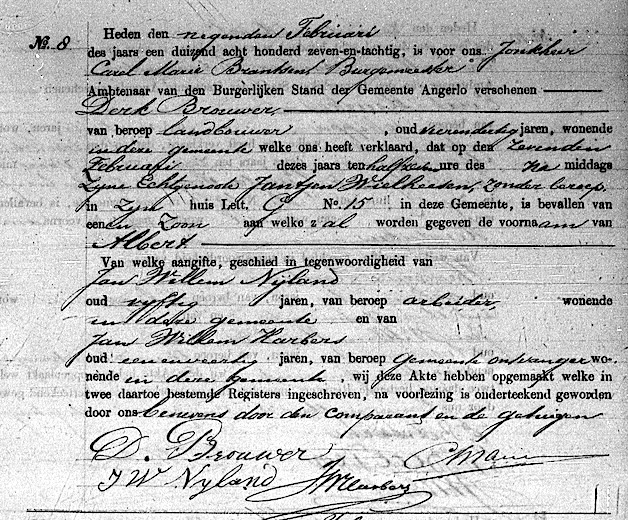 No. 8
Heden den negenden Februari
des jaars een duizend acht honderd zeven-en-tachtig, is voor ons Jonkheer
Carel Marie Brantsen Burgemeester
Ambtenaar van den Burgerlijken Stand der Gemeente Angerlo verschenen
Derk Brouwer,
van beroep landbouwer , oud vierendertig jaren, wonende
in deze gemeente welke ons heeft verklaard, dat op den zevenden
Februari dezes jaars ten half ure des na middags
Zyne Echtgenoote Jantjen Wielheesen, zonder beroep.
in Zyn huis Lett. G No. 15 in deze Gemeente, is bevallen van
eenen Zoon aan welke zal worden gegeven de voornaam van
Albert
Van welke aangifte, geschied in tegenwoordigheid van
Jan Willem Nyland
oud vyftig jaren, van beroep arbeider, wonende
in deze gemeente en van
Jan Willem Harbers
oud eenenveertig jaren, van beroep gemeente ontvanger wo-
nende in deze gemeente , wij deze Akte hebben opgemaakt welke in
twee daartoe bestemde Registers ingeschreven, na voorlezing is onderteekend geworden
door ons benevens door den comparant en de getuigen
D. Brouwer
J W Nyland JWHarbers